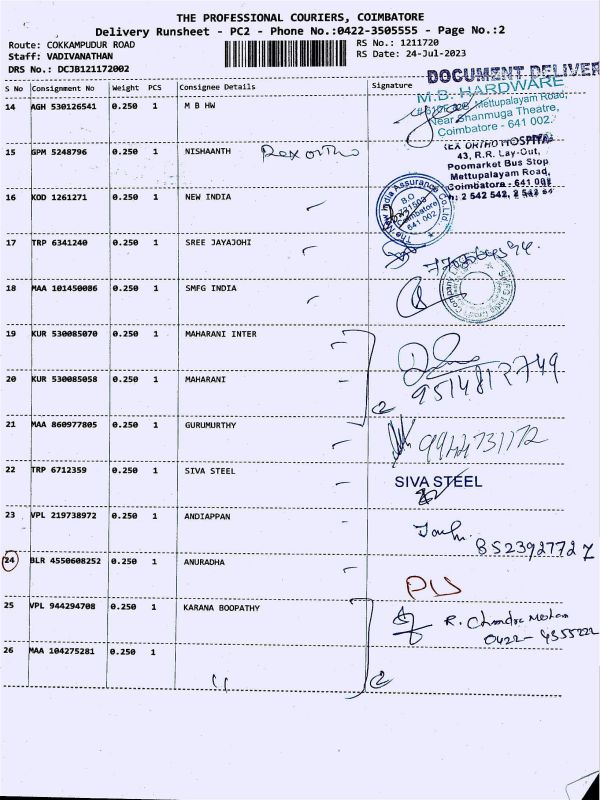 THE PROFESSIONAL COURIERS, COIMBATORE
Delivery Runsheet - PC2 - Phone No.:0422-3505555 - Page No.:2
Route: COKKAMPUDUR ROAD
RS No.: 1211720
Staff: VADIVANATHAN
RS Date: 24-Jul-2023
DRS No.: DCJB121172002
DOCUMENT DELIVER
S No Consignment No Weight PCS Consignee Details Signature
14 AGH 530126541 0.250 1 M B HW
M.B. HARDWARE
Mettupalayam Road,
Near Shanmuga Theatre,
Coimbatore - 641 002.
15 GPM 5248796 0.250 1 NISHAANTH Rex ortho
REX ORTHO HOSPITAL
43, R.R. Lay-Out,
Poomarket Bus Stop
Mettupalayam Road,
Coimbatore - 641 002
Ph: 2 542 542, 2 542 64
16 KOD 1261271 0.250 1 NEW INDIA
The New India Assurance Co. Ltd.
B.O.
Coimbatore
641 002
17 TRP 6341240 0.250 1 SREE JAYAJOHI
18 MAA 101450086 0.250 1 SMFG INDIA
19 KUR 530085070 0.250 1 MAHARANI INTER
20 KUR 530085058 0.250 1 MAHARANI
9514812749
21 MAA 860977805 0.250 1 GURUMURTHY
9944731172
22 TRP 6712359 0.250 1 SIVA STEEL
SIVA STEEL
23 VPL 219738972 0.250 1 ANDIAPPAN
8523927727
24 BLR 4550608252 0.250 1 ANURADHA
25 VPL 944294708 0.250 1 KARANA BOOPATHY
R. Chandra Mohan
0422-4355222
26 MAA 104275281 0.250 1